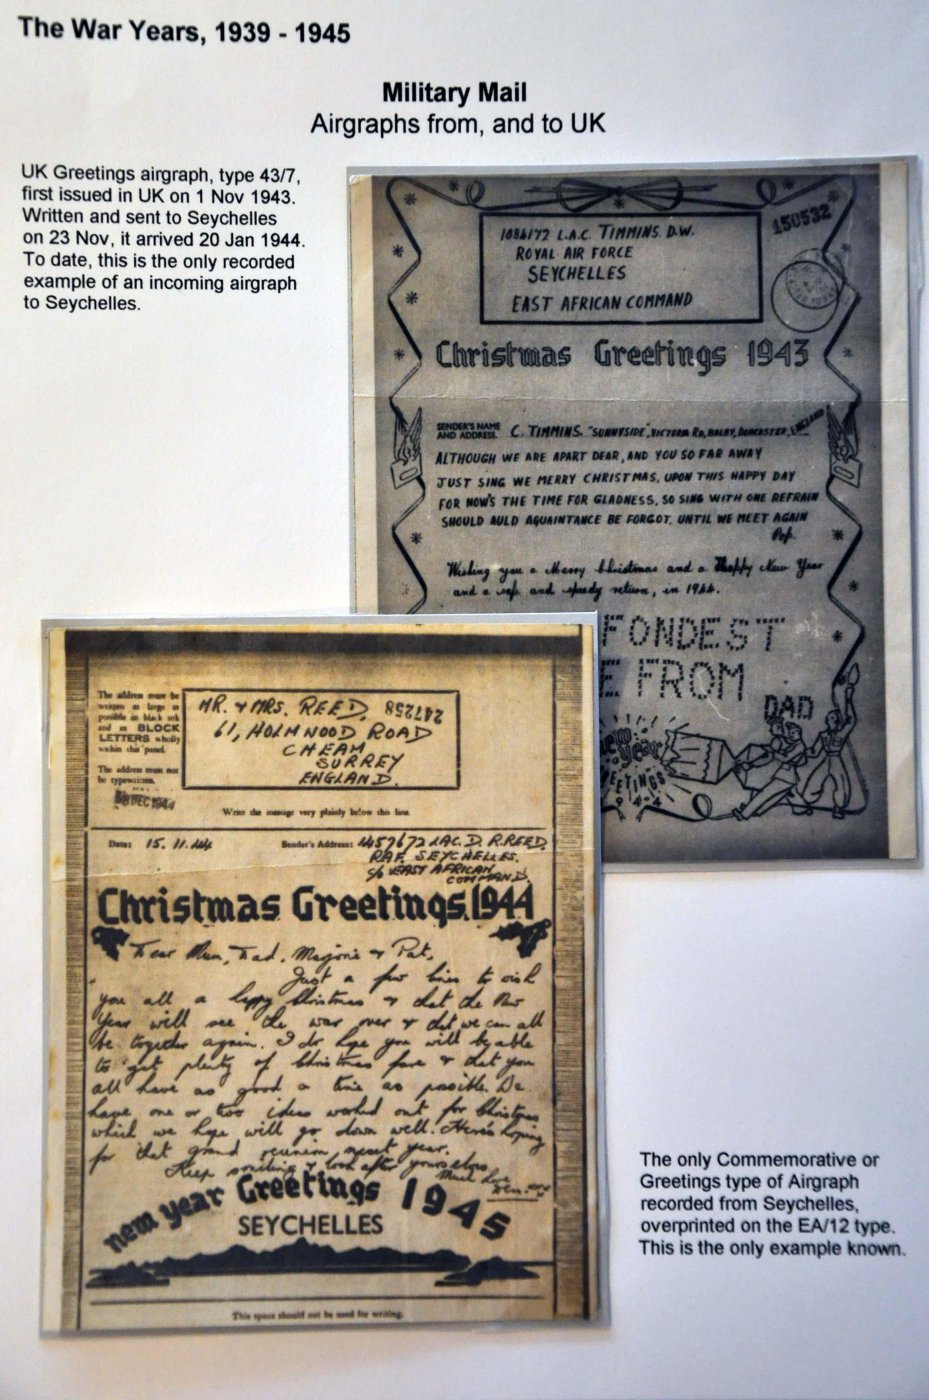 The War Years, 1939 - 1945
Military Mail
Airgraphs from, and to UK
UK Greetings airgraph, type 43/7,
first issued in UK on 1 Nov 1943.
Written and sent to Seychelles
on 23 Nov, it arrived 20 Jan 1944.
To date, this is the only recorded
example of an incoming airgraph
to Seychelles.
150532
1086172 L.A.C. TIMMINS. D.W.
ROYAL AIR FORCE
SEYCHELLES
EAST AFRICAN COMMAND
Christmas Greetings 1943
SENDER'S NAME
AND ADDRESS.
C. TIMMINS. "SUNNYSIDE", VICTORIA RD, BALBY, DONCASTER, ENGLAND
ALTHOUGH WE ARE APART DEAR, AND YOU SO FAR AWAY
JUST SING WE MERRY CHRISTMAS, UPON THIS HAPPY DAY
FOR NOW'S THE TIME FOR GLADNESS, SO SING WITH ONE REFRAIN
SHOULD AULD AQUAINTANCE BE FORGOT, UNTIL WE MEET AGAIN
Pop.
Wishing you a Merry Christmas and a Happy New Year
and a safe and speedy return, in 1944.
FONDEST
E FROM
DAD
New Year
EETINGS
1944
The address must be
written as large as
possible in black ink
and in BLOCK
LETTERS wholly
within this panel.
The address must not
be typewritten.
MR. & MRS. REED,
61, HOLMWOOD ROAD
CHEAM
SURREY
ENGLAND.
247258
DEC 1944
Write the message very plainly below this line.
Date: 15.11.44
Sender's Address: 1457672 LAC. D. R. REED.
RAF. SEYCHELLES.
c/o EAST AFRICAN
COMMAND.
Christmas Greetings, 1944
Dear Mum, Dad, Marjorie & Pat,
Just a few lines to wish
you all a happy Christmas & that the New
Year will see the war over & that we can all
be together again. I do hope you will be able
to get plenty of Christmas fare & that you
all have as good a time as possible. We
have one or two ideas worked out for Christmas
which we hope will go down well. Here's hoping
for that grand reunion next year.
Keep smiling & look after yourselves
Much Love
new year Greetings 1945
SEYCHELLES
This space should not be used for writing.
The only Commemorative or
Greetings type of Airgraph
recorded from Seychelles,
overprinted on the EA/12 type.
This is the only example known.